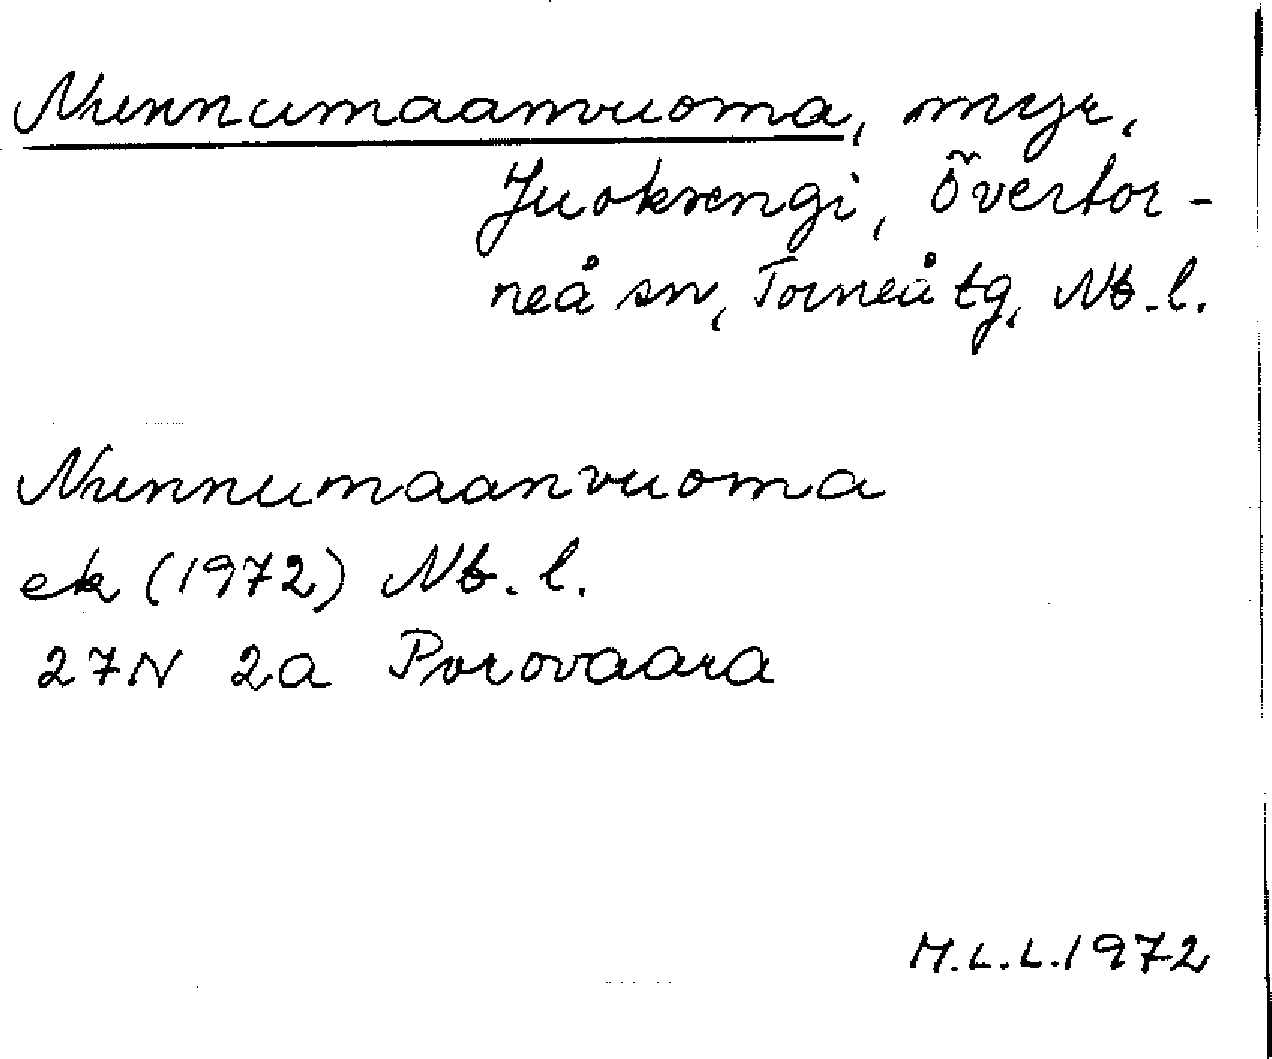 Nunnumaanvuoma, myr,
Juoksengi, Övertor-
neå sn, Torneå tg, Nb. l.
Nunnumaanvuoma
ek (1972) Nb. l.
27N 2a Porovaara
M.L.L. 1972